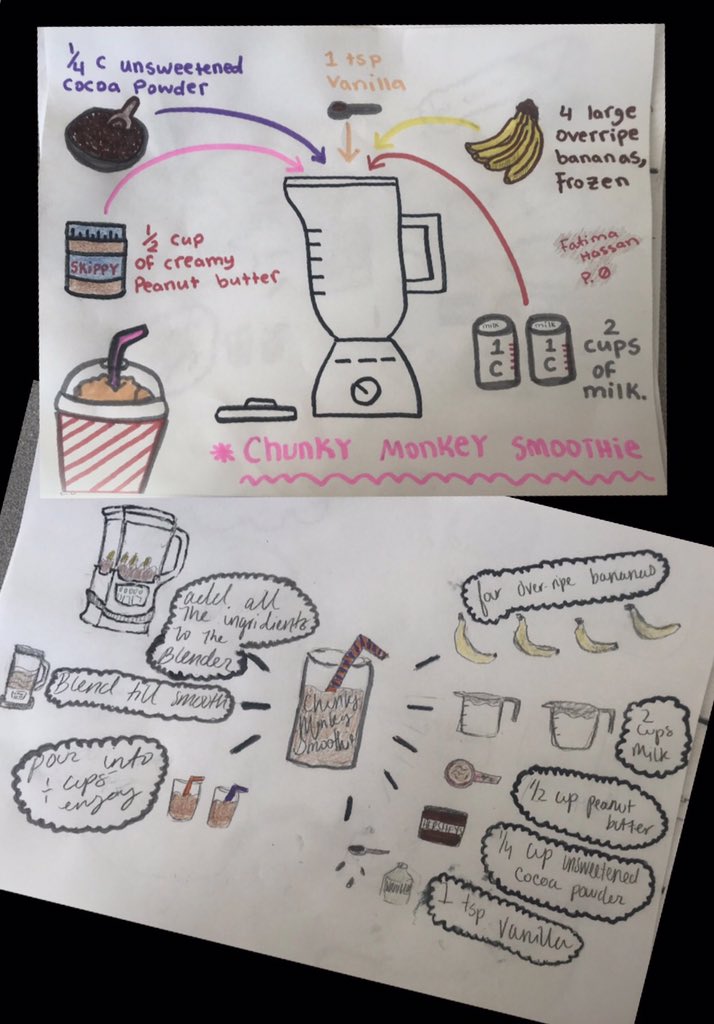 1/4 C unsweetened
cocoa powder
1 tsp
Vanilla
4 large
overripe
bananas,
Frozen
SKIPPY
1/2 cup
of creamy
Peanut butter
Fatima
Hassan
P. 0
milk
1
C
milk
1
C
2
cups
of
milk.
* Chunky Monkey Smoothie
add all
The ingridients
to The
Blender
Blend till smooth
pour into
cups
enjoy
Chunky
Monkey
Smoothie
for over-ripe bananas
2
cups
milk
1/2 cup peanut
butter
HERSHEY'S
1/4 cup unsweetened
cocoa powder
vanilla
1 tsp vanilla